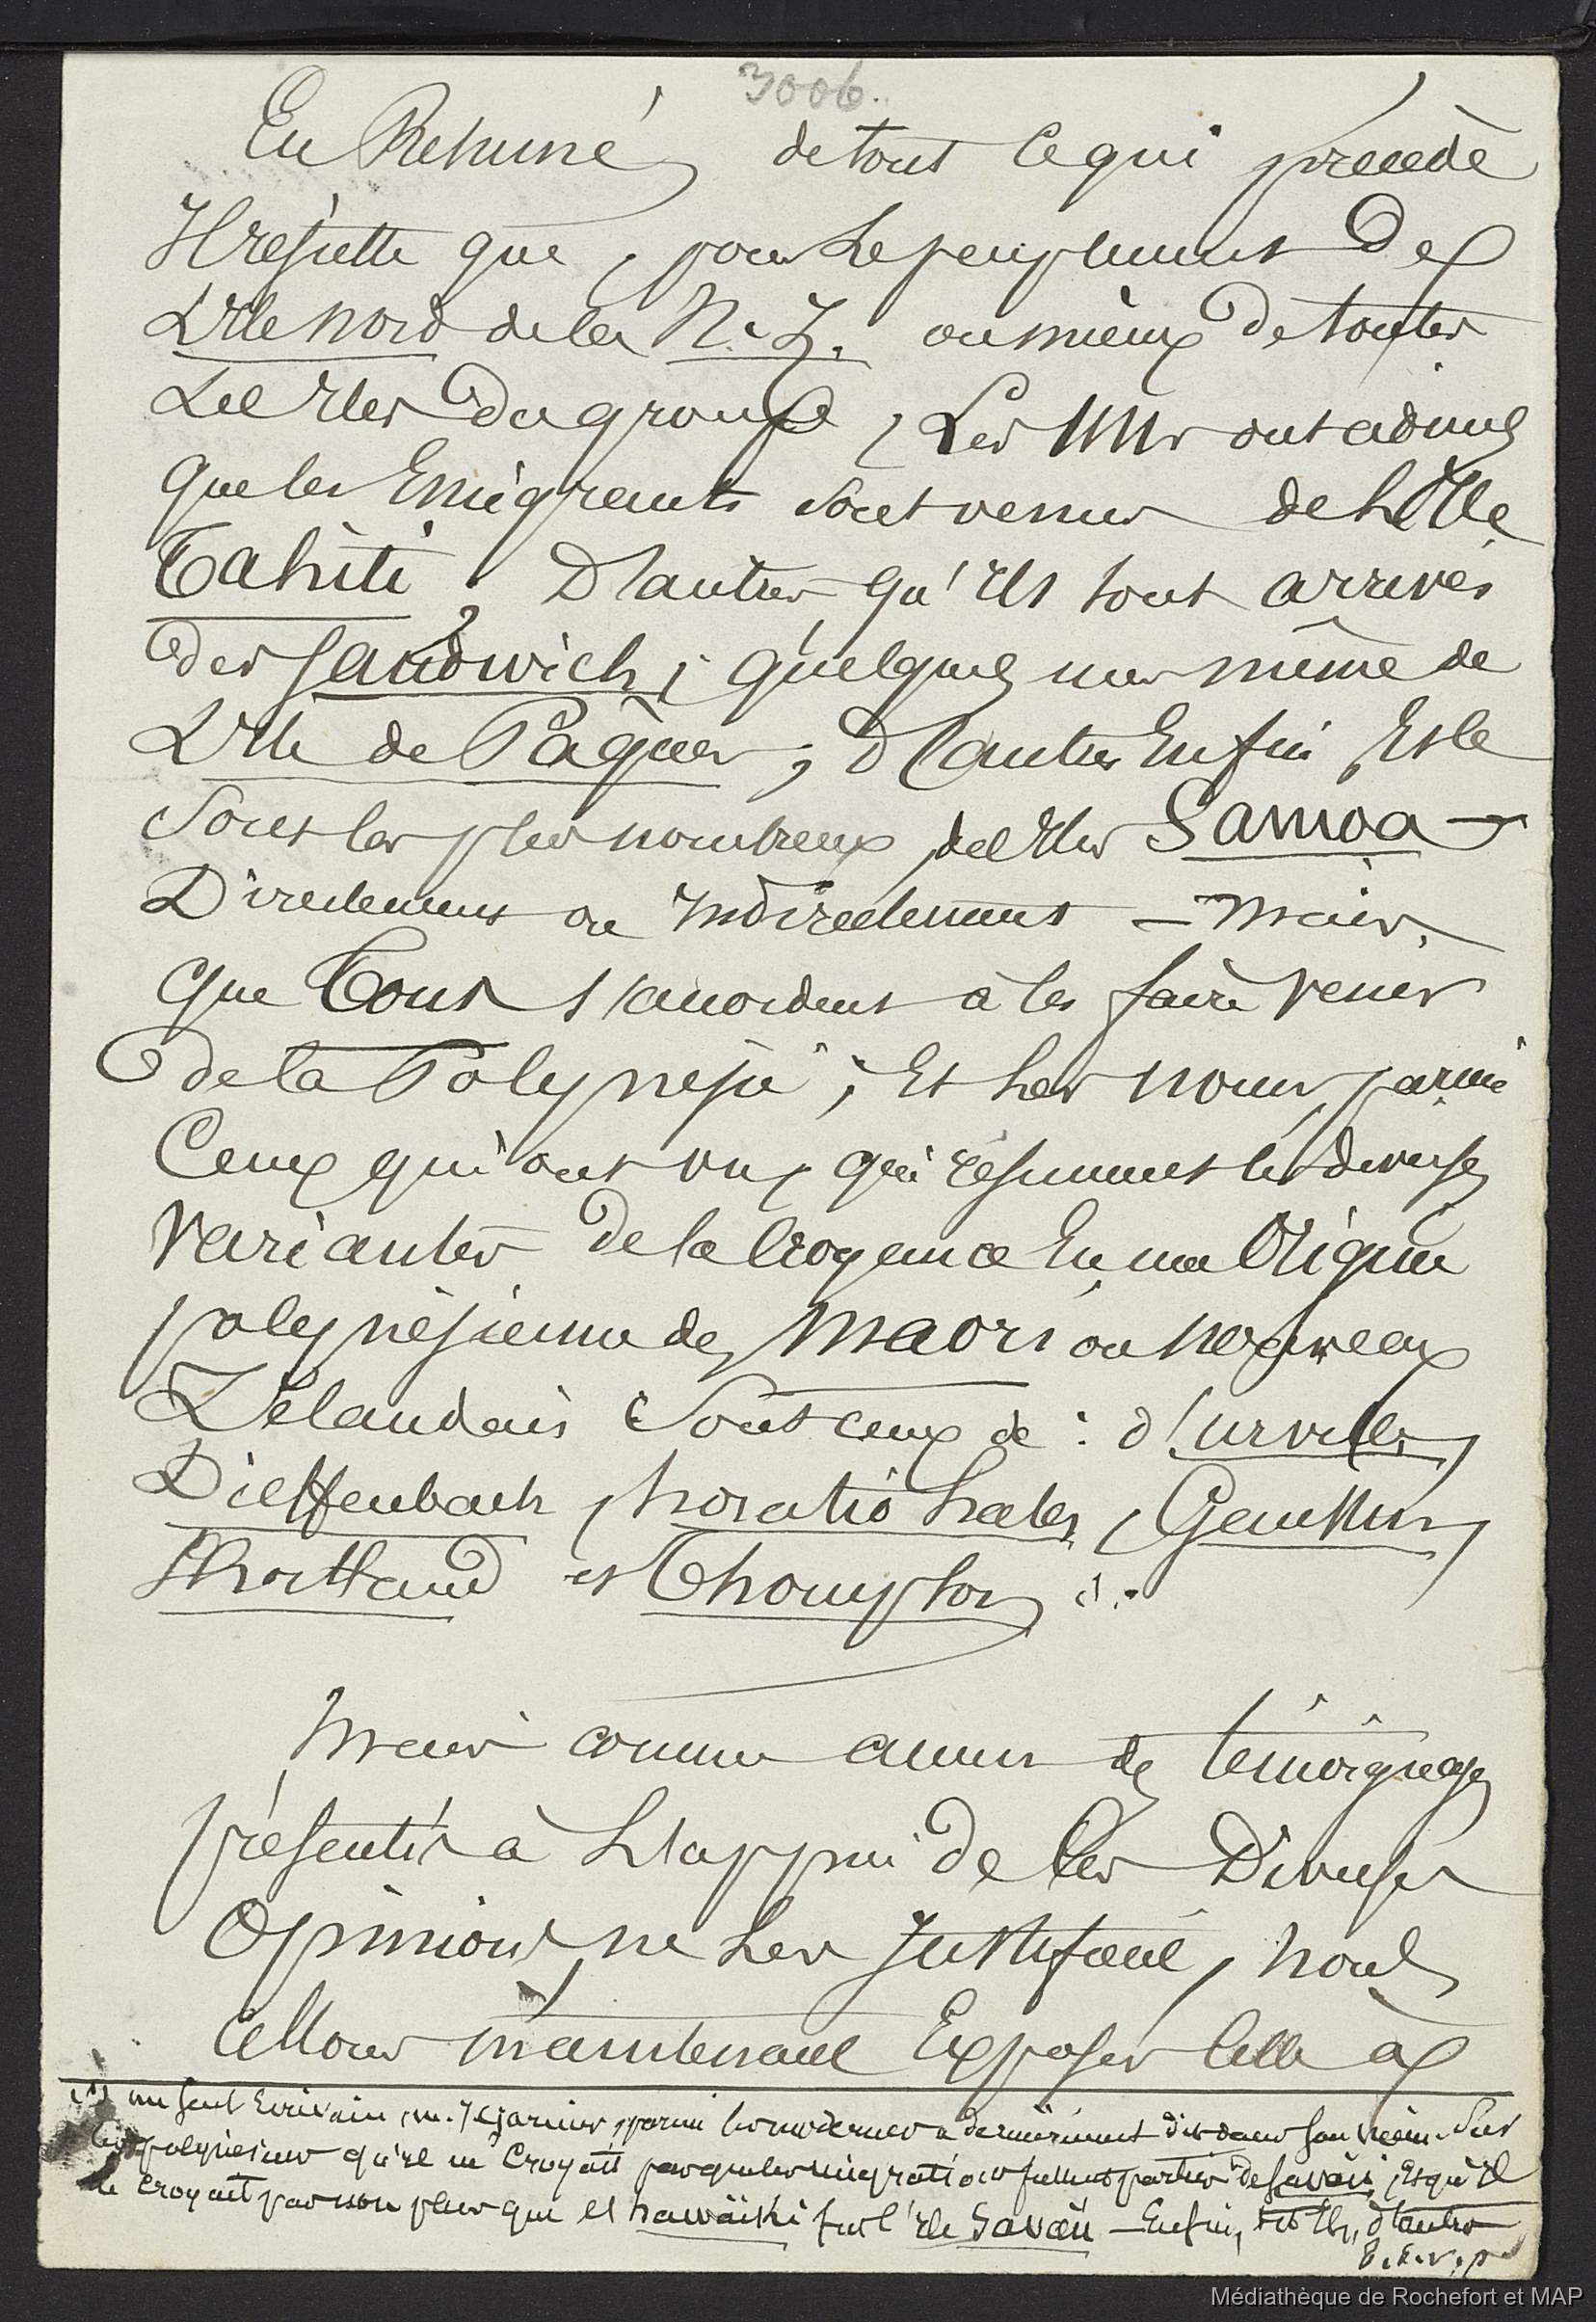 3006.
En Résumé, de tout ce qui précède
Il résulte que, pour le peuplement de
L'Ile nord de la N. Z. ou mieux de toutes
Les Iles du groupe, Les uns ont admis
que les Emigrants sont venus de L'Ile
Tahiti, D'autres qu'Ils sont arrivés
des Sandwich; quelques uns même de
L'Ile de Pâques; D'autres Enfin, Et ce
Sont les plus nombreux, des Iles Samoa -
Directement ou Indirectement - mais
que Tous s'accordent à les faire venir
de la Polynésie; Et les noms, parmi
Ceux qui ont vu, qui résument les diverses
Variantes de la Croyance En une Origine
polynésienne des Maori ou nouveaux
Zélandais Sont ceux de: d'urville,
Dieffenbach, horatio hales, Gaussin,
Shortland et Thompson
Mais comme aucun des témoignages
présentés à L'appui de Ces Diverses
Opinions, ne Les Justifient, nous
allons maintenant Exposer Celle à
(1) un seul Ecrivain, m. J. garnier, parmi les modernes a dernièrement dit dans son mém. sur
les polynésiens qu'il ne Croyait pas que les migrations fussent parties de Savaii, Et qu'il
ne Croyait pas non plus que hawaïki fut l'Ile Savaii - Enfin, d'autres
T. S. V. p
Médiathèque de Rochefort et MAP